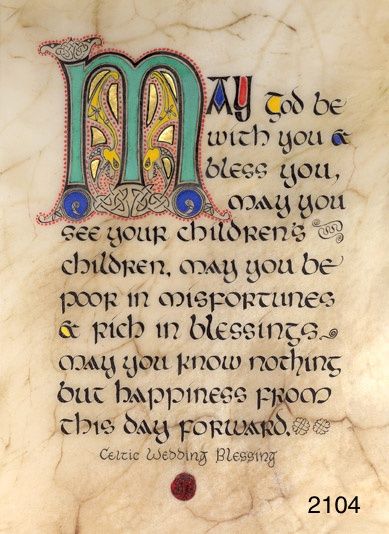 MAY God be
with you &
bless you,
may you
see your children's
children, may you be
poor in misfortunes
& rich in blessings
may you know nothing
but happiness from
this day forward.
Celtic Wedding Blessing
2104